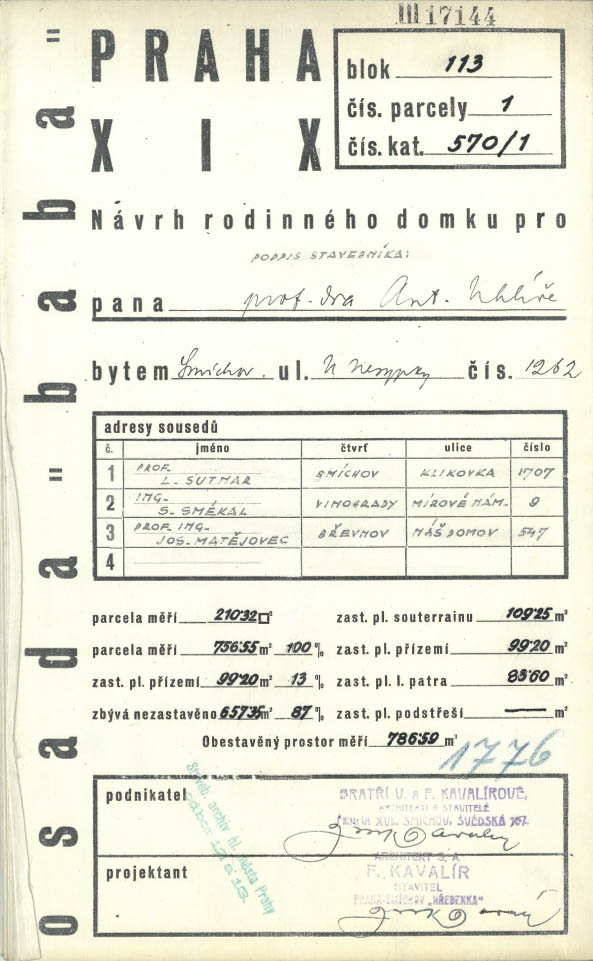 III 17144
osada „baba“
PRAHA
XIX
blok 113
čís. parcely 1
čís. kat. 570/1
Návrh rodinného domku pro
PODPIS STAVEBNÍKA:
pana prof. dra Ant. Uhlíře
bytem Smíchov. ul. U Nesypky čís. 1262
adresy sousedů
č. jméno čtvrť ulice číslo
1 PROF. L. SUTNAR SMÍCHOV KLIKOVKA 1707
2 ING. S. SMÉKAL VINOHRADY MÍROVÉ NÁM. 9
3 PROF. ING. JOS. MATĚJOVEC BŘEVNOV NÁŠ DOMOV 547
4
parcela měří 210·32□² zast. pl. souterrainu 109·25 m²
parcela měří 756·55 m² 100% zast. pl. přízemí 99·20 m²
zast. pl. přízemí 99·20 m² 13 % zast. pl. I. patra 83·60 m²
zbývá nezastavěno 657·35 m² 87 % zast. pl. podstřeší — m²
Obestavěný prostor měří 786·59 m³
1776
podnikatel
BRATŘI V. a F. KAVALÍROVÉ,
ARCHITEKTI A STAVITELÉ
PRAHA XVI. SMÍCHOV, ŠVÉDSKÁ
Staveb. archiv hl. města Prahy
projektant
ARCHITEKT S. A.
F. KAVALÍR
STAVITEL
PRAHA-SMÍCHOV „HŘEBENKA“